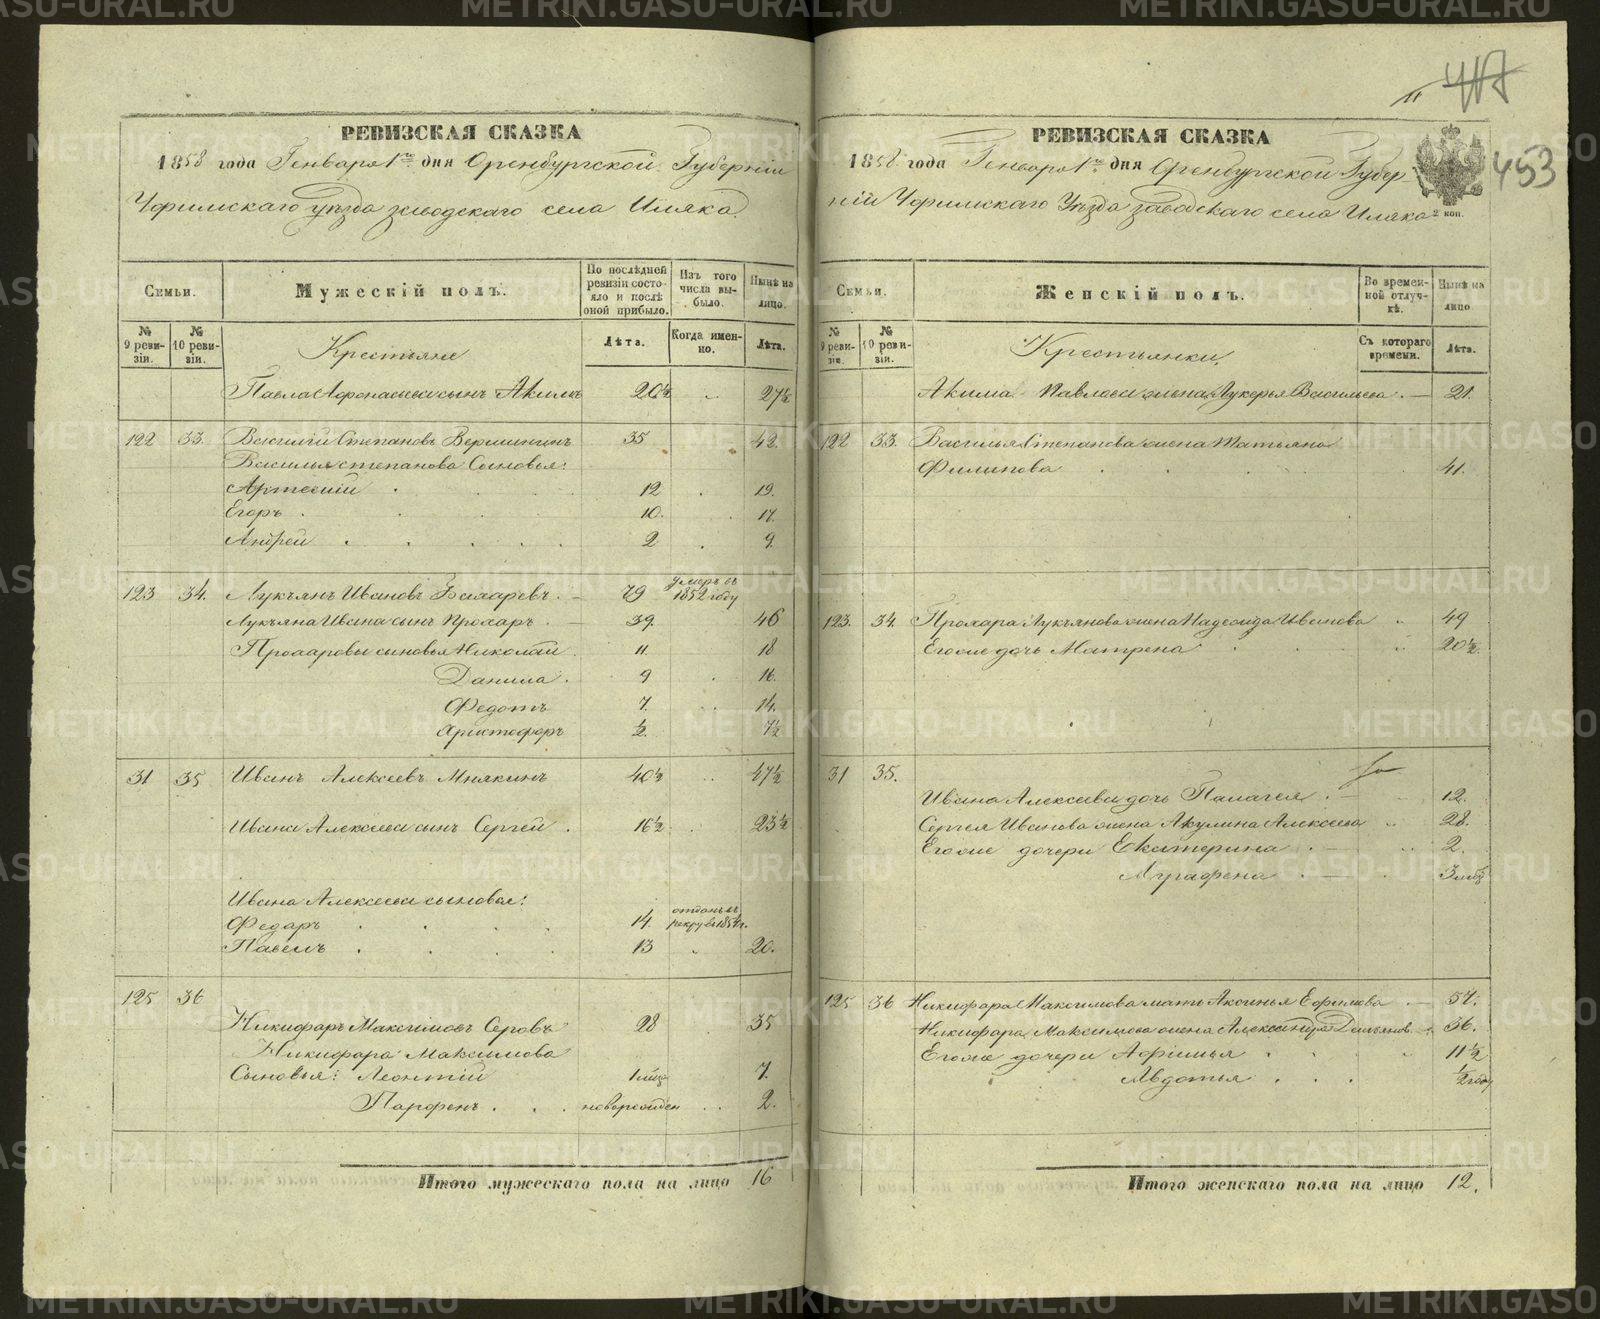 РЕВИЗСКАЯ СКАЗКА
1858 года Генваря 1го дня Оренбургской Губерніи
Уфимскаго уѣзда заводскаго села Иляка.
Семьи.
Мужескій полъ.
По послѣдней ревизіи состояло и послѣ оной прибыло.
Изъ того числа выбыло.
Нынѣ на лицо.
№ 9 ревизіи.
№ 10 ревизіи.
Крестьяне
Лѣта.
Когда именно.
Лѣта.
Павла Афонасьева сынъ Акимъ 20½ 27½
122 33. Василій Степановъ Вершининъ 35 42.
Василья Степанова Сыновья:
Артемій 12 19.
Егоръ 10. 17.
Андрей 2 9.
123 34. Лукъянъ Ивановъ 79 умеръ въ 1852 году
Лукъяна Ивана сынъ Прохаръ 39. 46
Прохаровы сыновья Николай 11. 18
Данила 9 16.
Федотъ 7. 14.
Христофоръ ½. 7½
31 35 Иванъ Алексеевъ Мнякинъ 40½ 47½
Ивана Алексеева сынъ Сергей 16½ 23½
Ивана Алексеева сыновья:
Федаръ 14. отданъ въ рекруты 1854 г.
Павелъ 13 20.
125 36
Никифаръ Максимовъ Серовъ 28 35
Никифара Максимова
Сыновья: Леонтій 7.
Парфенъ новорожден 2.
Итого мужескаго пола на лицо 16
РЕВИЗСКАЯ СКАЗКА
453
1858 года Генваря 1го дня Оренбургской Губер-
ніи Уфимскаго Уѣзда заводскаго села Иляка
2 коп.
Семьи.
Женскій полъ.
Во временной отлучкѣ.
Нынѣ на лицо
№ 9 ревизіи.
№ 10 ревизіи.
Крестьянки.
Съ котораго времени.
Лѣта.
Акима Павлова жена Лукерья Васильева 21.
122 33. Василья Степанова жена Татьяна
Филипова 41.
123. 34. Прохара Лукъянова жена Надежда Иванова 49
Его же дочь Матрена 20½.
31 35.
Ивана Алексеева дочь Палагея 12.
Сергея Иванова жена Акулина Алексеева 28.
Его же дочери Екатерина 2.
Аграфена 3
125 36 Никифара Максимова мать Аксинья Ефимова 57.
Никифара Максимова жена Александра 36.
Его же дочери Афимья 11½
Авдотья ½ году
Итого женскаго пола на лицо 12.
METRIKI.GASO-URAL.RU